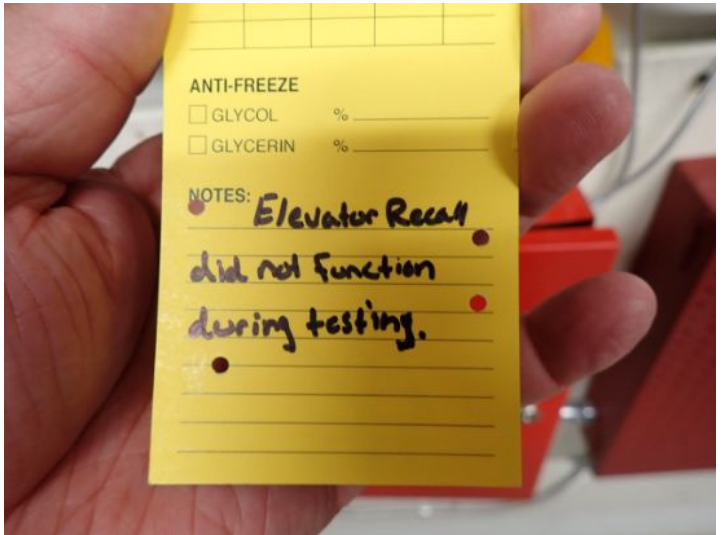 ANTI-FREEZE
GLYCOL %
GLYCERIN %
NOTES: Elevator Recall
did not function
during testing.